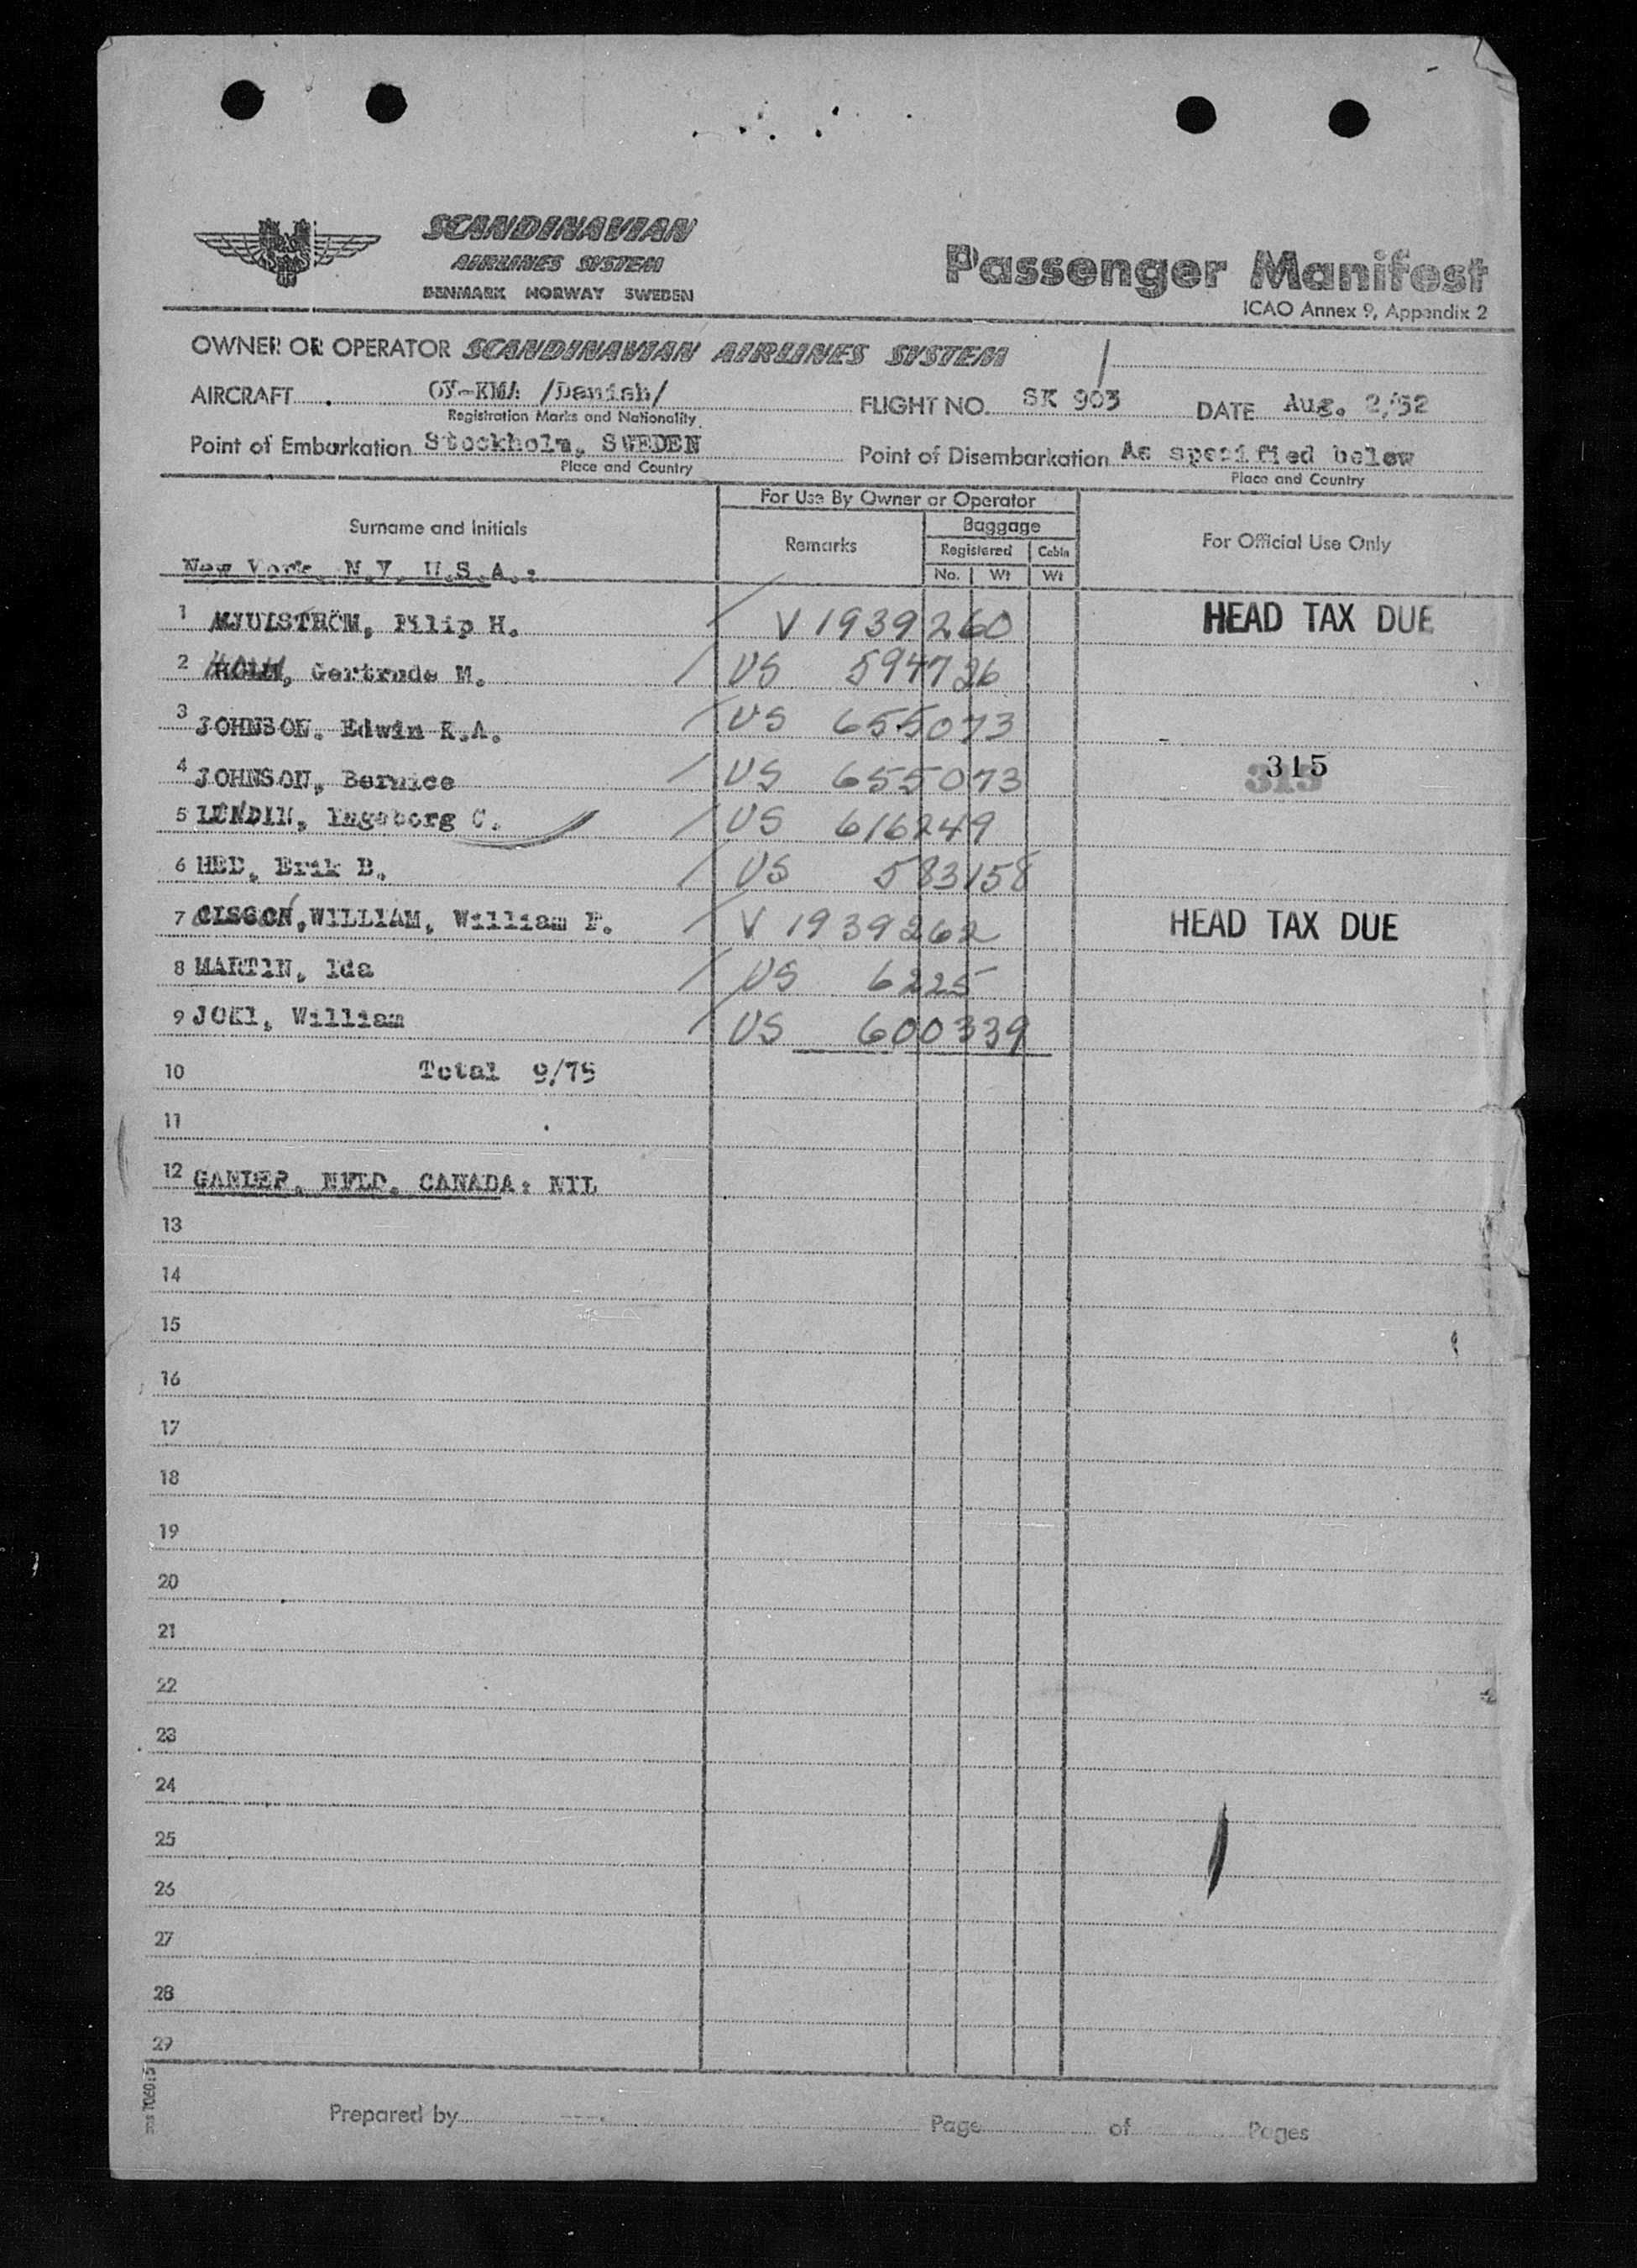 SCANDINAVIAN
AIRLINES SYSTEM
DENMARK NORWAY SWEDEN
Passenger Manifest
ICAO Annex 9, Appendix 2
OWNER OR OPERATOR SCANDINAVIAN AIRLINES SYSTEM
AIRCRAFT OY-KMA /Danish/ FLIGHT NO. SK 903 DATE Aug. 2,'52
Registration Marks and Nationality
Point of Embarkation Stockholm, SWEDEN Point of Disembarkation As specified below
Place and Country Place and Country
For Use By Owner or Operator
Surname and Initials Remarks Baggage For Official Use Only
Registered Cabin
No. Wt Wt
New York, N.Y. U.S.A.:
1 MJULSTRÖM, Filip H. V 1939260 HEAD TAX DUE
2 HOLM, Gertrude M. US 594726
3 JOHNSON, Edwin K.A. US 655073
4 JOHNSON, Bernice US 655073 315
5 LUNDIN, Ingeborg C. US 616249
6 HED, Erik B. US 583158
7 WILLIAM, William F. V 1939262 HEAD TAX DUE
8 MARTIN, Ida US 6225
9 JOKI, William US 600339
10 Total 9/75
11
12 GANDER, NFLD. CANADA: NIL
13
14
15
16
17
18
19
20
21
22
23
24
25
26
27
28
29
Prepared by Page of Pages